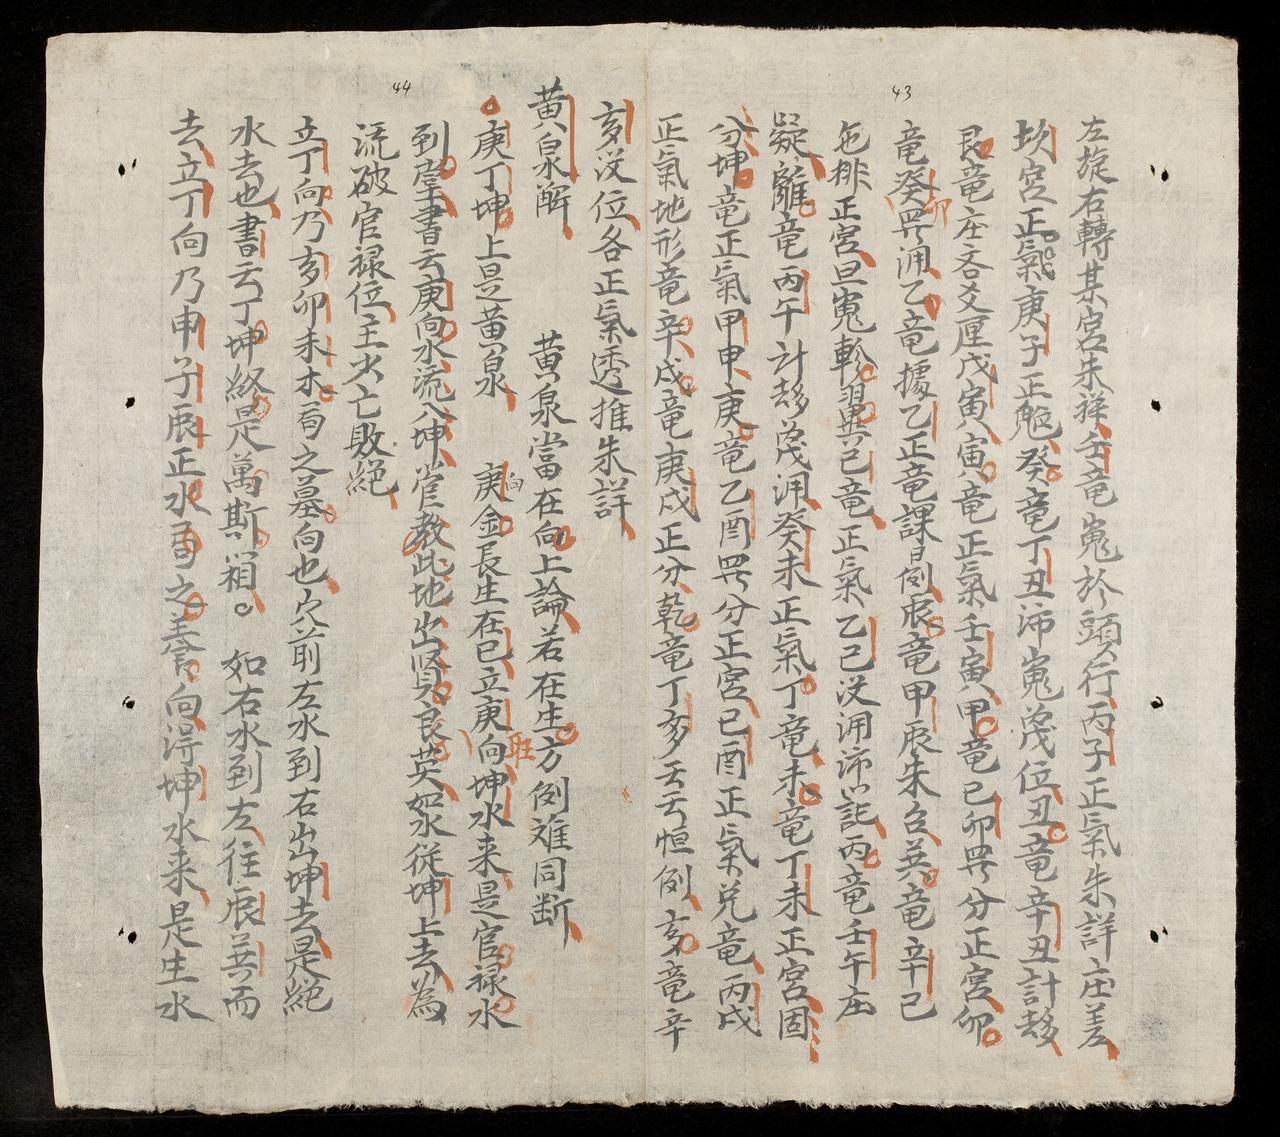 43
左旋右轉某宮未祥壬竜嵬於頭行丙子正氣朱詳庄差
坎宮正氣庚子正魁癸竜丁丑沛嵬茂位丑竜辛丑計赦
艮竜庄吝爻厘戊寅寅竜正氣壬寅甲竜己卯畧分正宮卯
竜癸畧涌乙竜據乙正竜課易例辰竜甲辰朱召英竜辛巳
卯
色排正宮旦嵬軫翼巳竜正氣乙巳没涌沛訛丙竜壬午庄
疑離竜丙午計赦茂涌癸未正氣丁竜未竜丁未正宮固
分坤竜正氣甲申庚竜乙酉畧分正宮己酉正氣兌竜丙戌
正氣地形竜辛戌竜庚戌正分乾竜丁亥壬云恒例亥竜辛
亥没位各正氣透推朱詳
黄泉解 黄泉當在向上論若在生方例难同断
44
庚丁坤上是黄泉 庚金長生在巳立庚向坤水来是官禄水
向
旺
到堂書云庚向水流入坤宫教此地出贤良英如水従坤上去為
流破官禄位主夭亡敗絶
立丁向乃亥卯未木局之墓向也穴前左水到右出坤去是絶
水去也書云丁坤終是萬斯箱 如右水到左往辰巽而
去立丁向乃申子辰正水局之养向得坤水来是生水